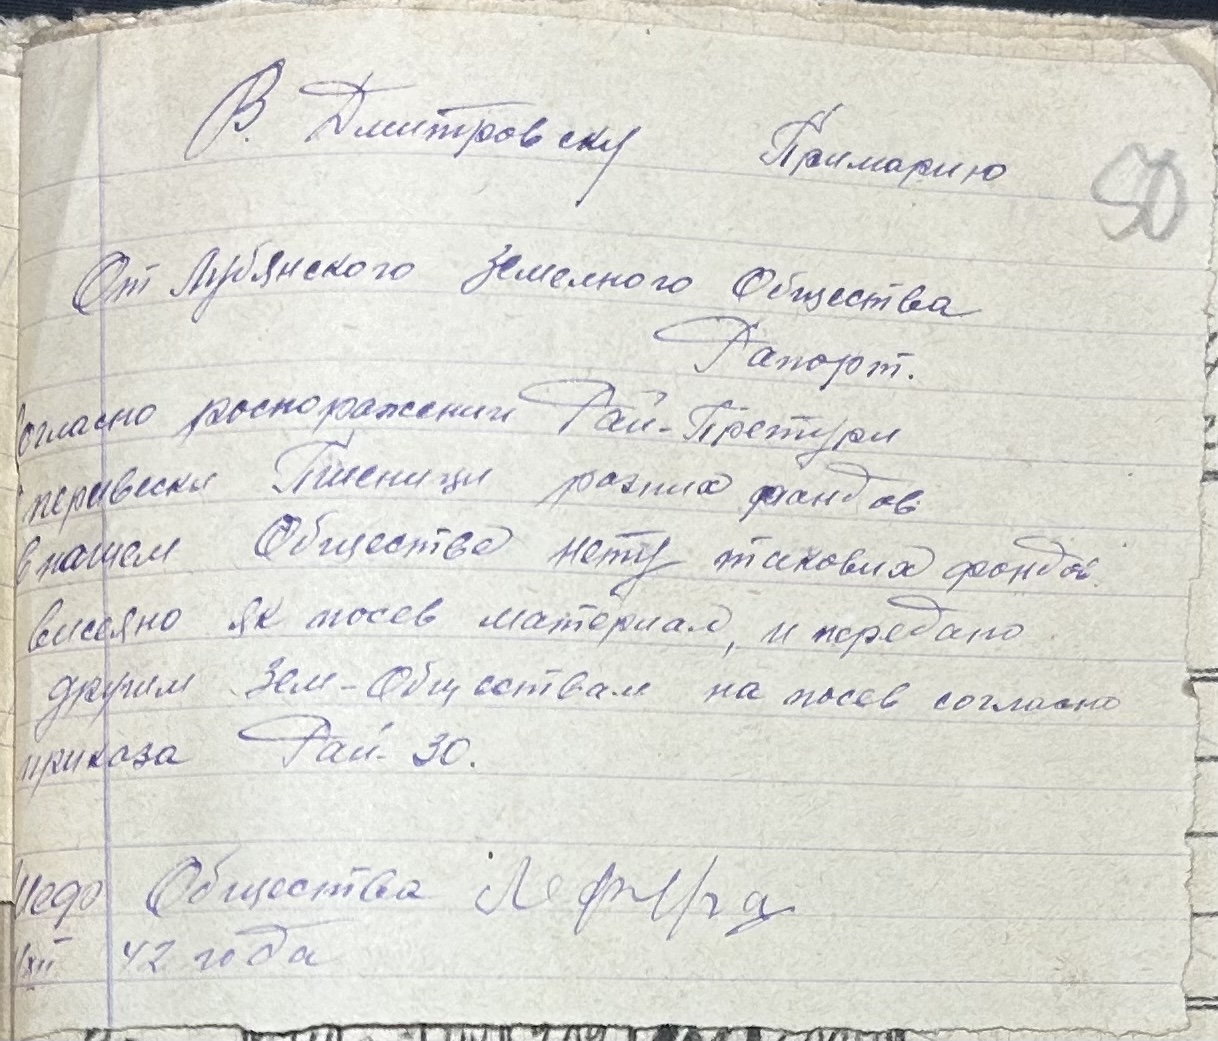 В. Дмитровску Примарию
50
От Лубянского Земелного Общества
Рапорт.
огласно роспоражении Рай-Претури
перевески Пшеници разних фондов
в нашем Обществе нету такових фондов.
висеяно як посев материал, и передано
другим Зем-Обществам на посев согласно
приказа Рай- 30.
Общества
XII 42 года